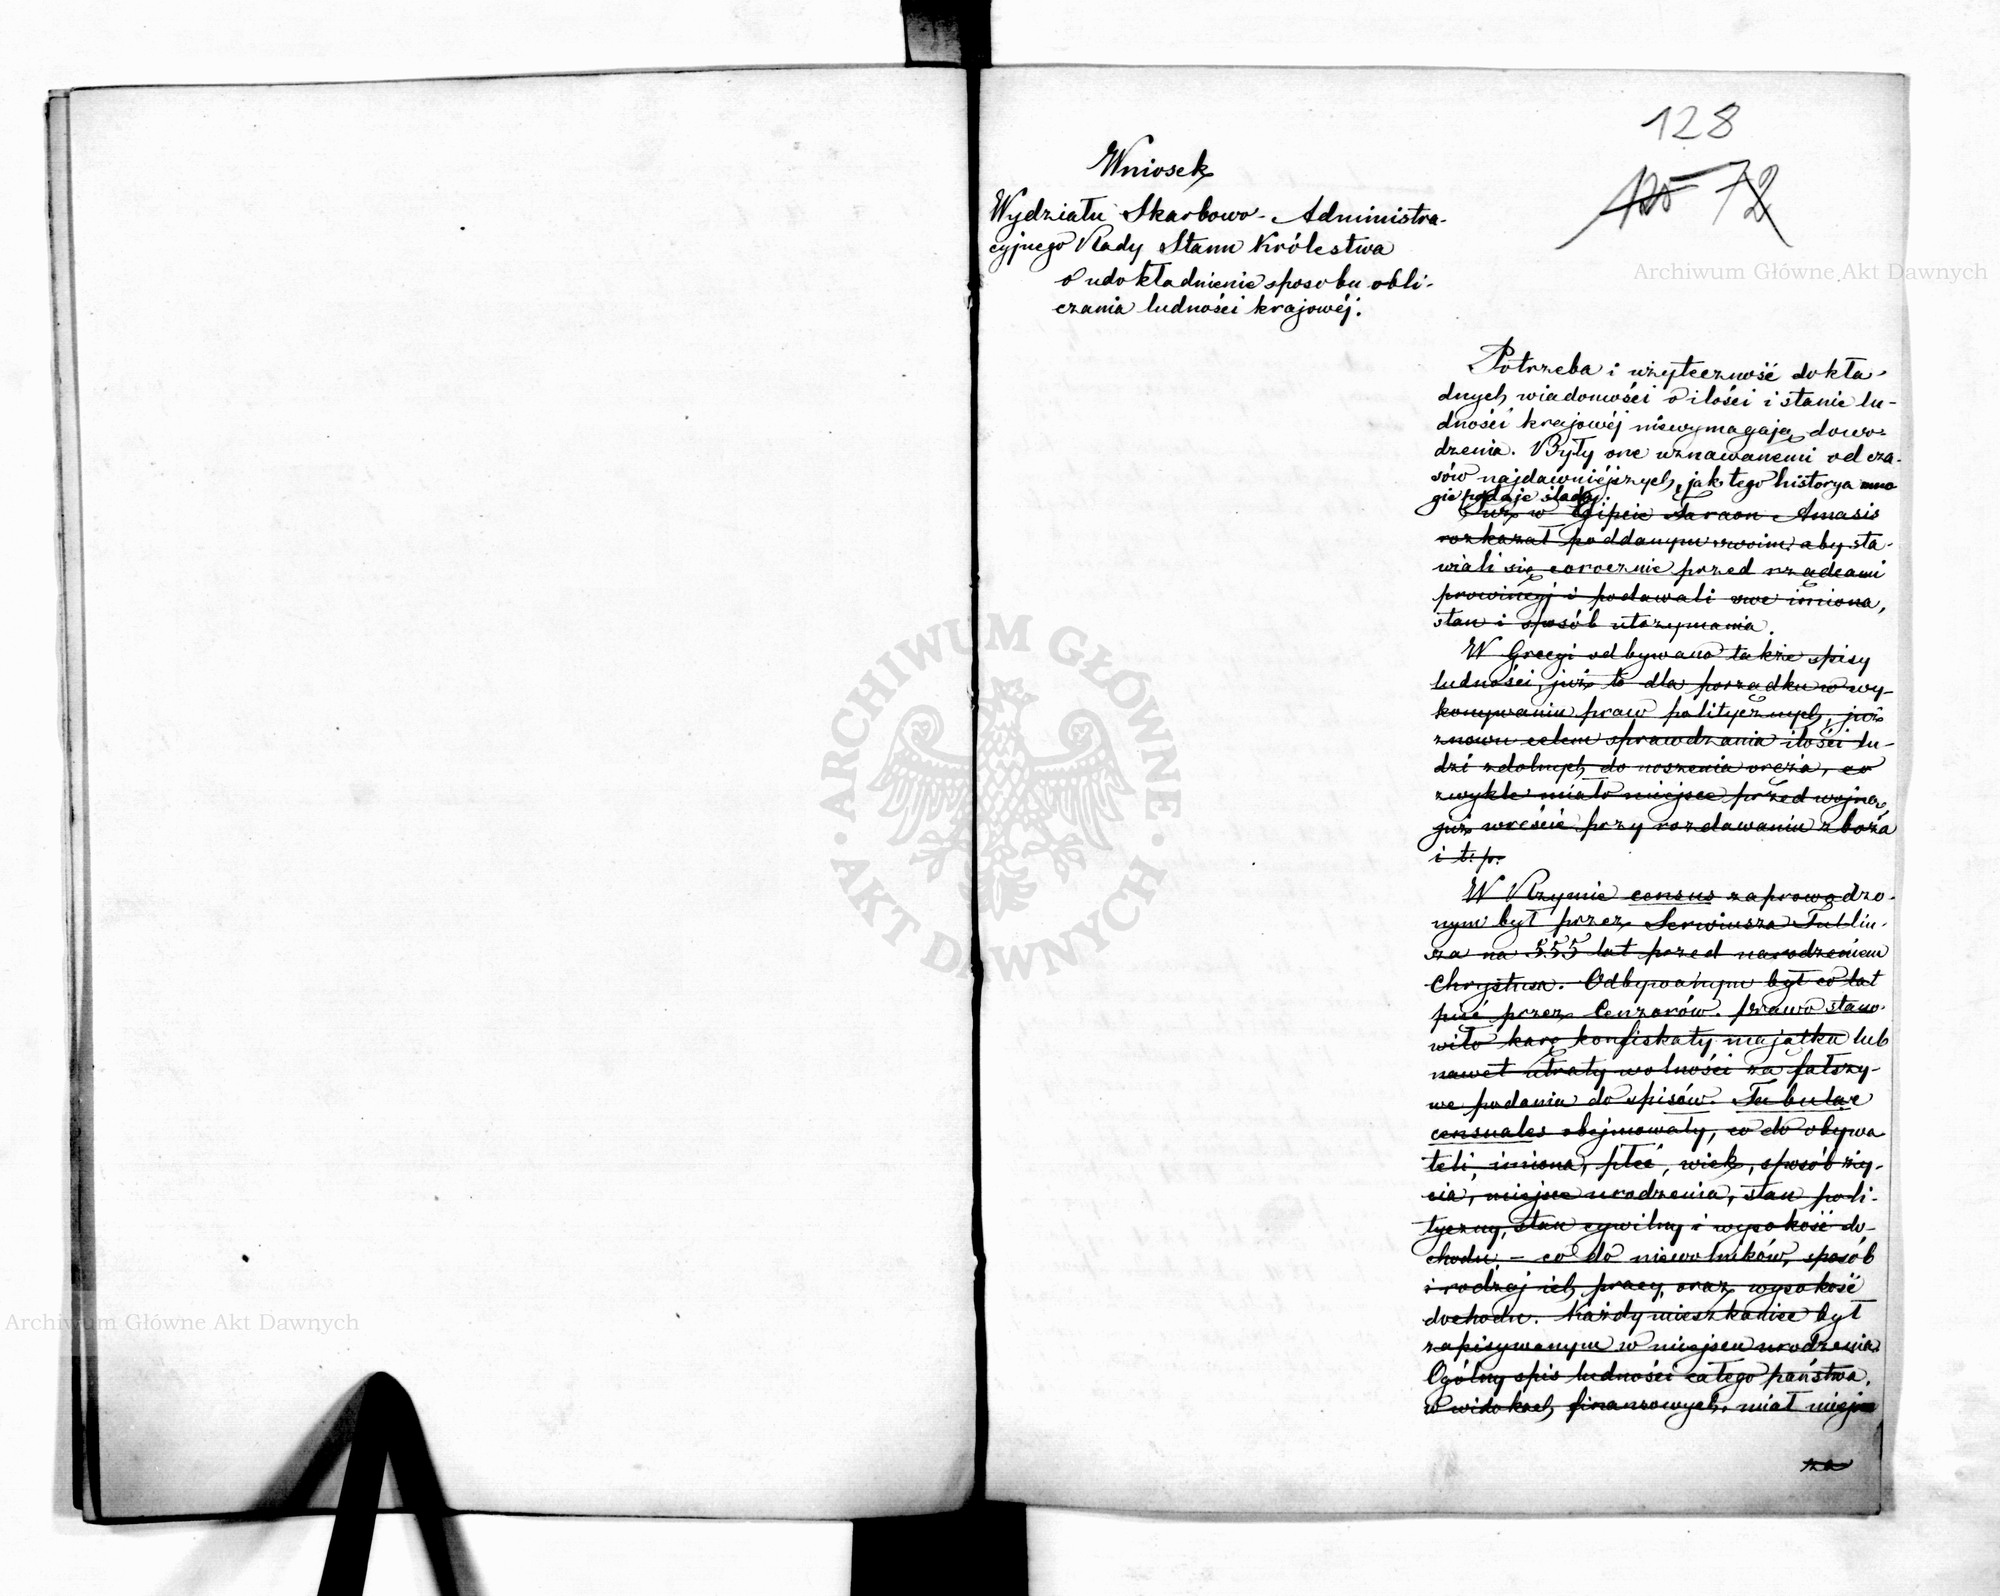 128
125 72
Wniosek
Wydziału Skarbowo-Administra-
cyjnego Rady Stanu Królestwa
o udokładnienie sposobu obli-
czania ludności krajowéj.
Potrzeba i użyteczność dokła-
dnych wiadomości o ilości i stanie lu-
dności krajowéj niewymagają dowo-
dzenia. Były one uznawanemi od cza-
sów najdawniéjszych, jak tego historya mno
gie podaje ślady.
Już w Egipcie Faraon Amasis
rozkazał poddanym swoim, aby sta-
wiali się corocznie przed rządcami
prowincyj i podawali swe imiona,
stan i sposób utrzymania.
W Grecyi odbywano także spisy
ludności, już to dla porządku w wy-
konywaniu praw politycznych, już
znowu celem sprawdzania ilości lu-
dzi zdolnych do noszenia oręża, co
zwykle miało miejsce przed wojną,
już wreście przy rozdawaniu zboża
i t. p.
W Rzymie census zaprowadzo-
nym był przez Serwiusza Tulliu-
sza na 555 lat przed narodzeniem
Chrystusa. Odbywanym był co lat
pięć przez Cenzorów. Prawo stano-
wiło karę konfiskaty majątku lub
nawet utraty wolności za fałszy-
we podania do spisów. Tabulae
censuales obejmowały, co do obywa
teli, imiona, płeć, wiek, sposób ży-
cia, miejsce urodzenia, stan poli-
tyczny, stan cywilny i wysokość do-
chodu, - co do niewolników, sposób
i rodzaj ich pracy, oraz wysokość
dochodu. Każdy mieszkaniec był
zapisywanym w miejscu urodzenia.
Ogólny spis ludności całego państwa,
w widokach finansowych, miał miejsce
za
Archiwum Główne Akt Dawnych
Archiwum Główne Akt Dawnych
ARCHIWUM GŁÓWNE
AKT DAWNYCH